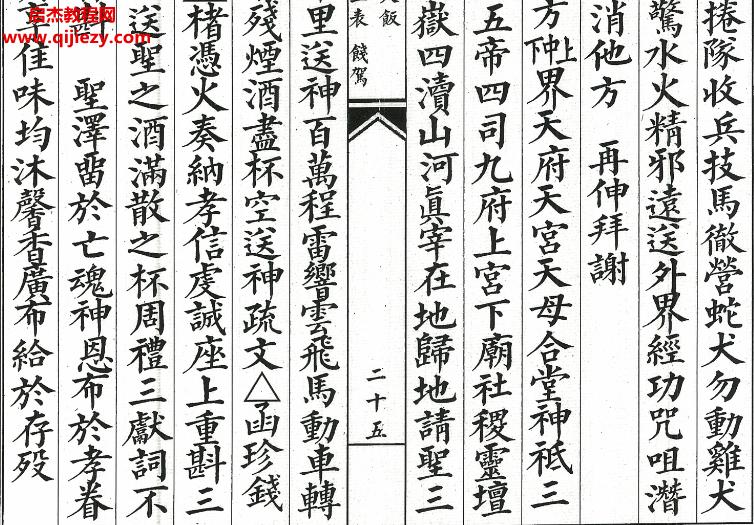 捲隊收兵技馬徹營蛇犬勿動雞犬
驚水火精邪遠送外界經功咒咀潛
消他方 再伸拜謝
方上中下界天府天宮天母合堂神祇三
五帝四司九府上宮下廟社稷靈壇
嶽四瀆山河眞宰在地歸地請聖三
飯
表 餞駕
二十五
里送神百萬程雷響雲飛馬動車轉
殘煙酒盡杯空送神疏文△函珍錢
楮憑火奏納孝信虔誠座上重斟三
送聖之酒滿散之杯周禮三獻詞不
聖澤畱於亡魂神恩布於孝眷
佳味均沐馨香廣布給於存歿
启杰教程网
www.qijiezy.com